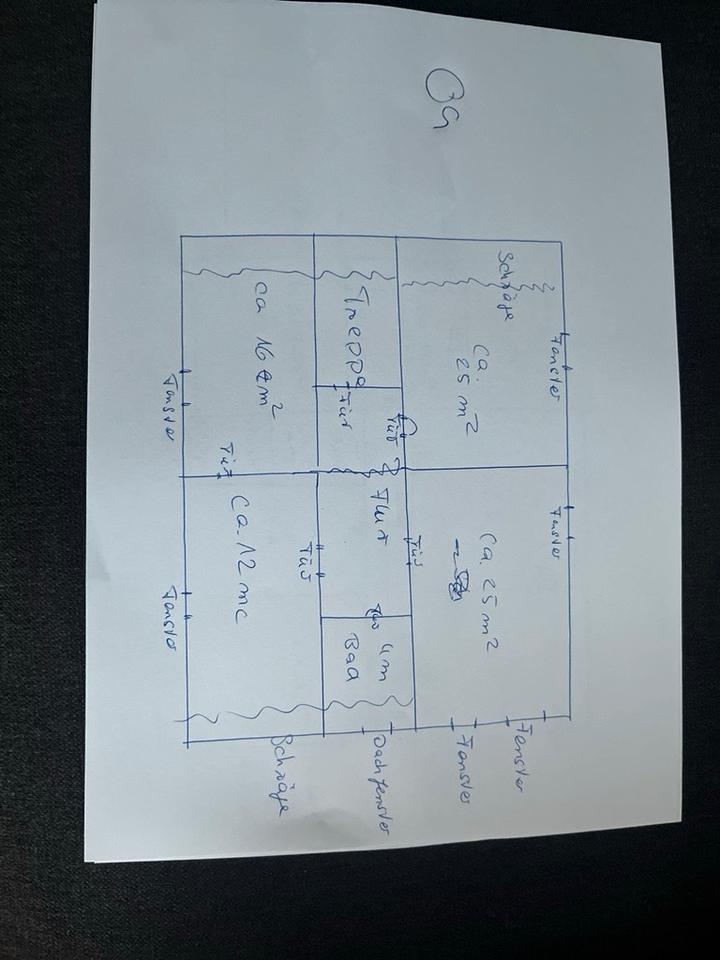 OG
Fenster
Fenster
Schräge
ca.
25 m²
ca. 25 m²
Fenster
Fenster
Tür
Tür
Treppe
Tür
Flur
Tür
4m
Bad
Dachfenster
Tür
ca 16 m²
Tür
ca. 12 m
Schräge
Fenster
Fenster